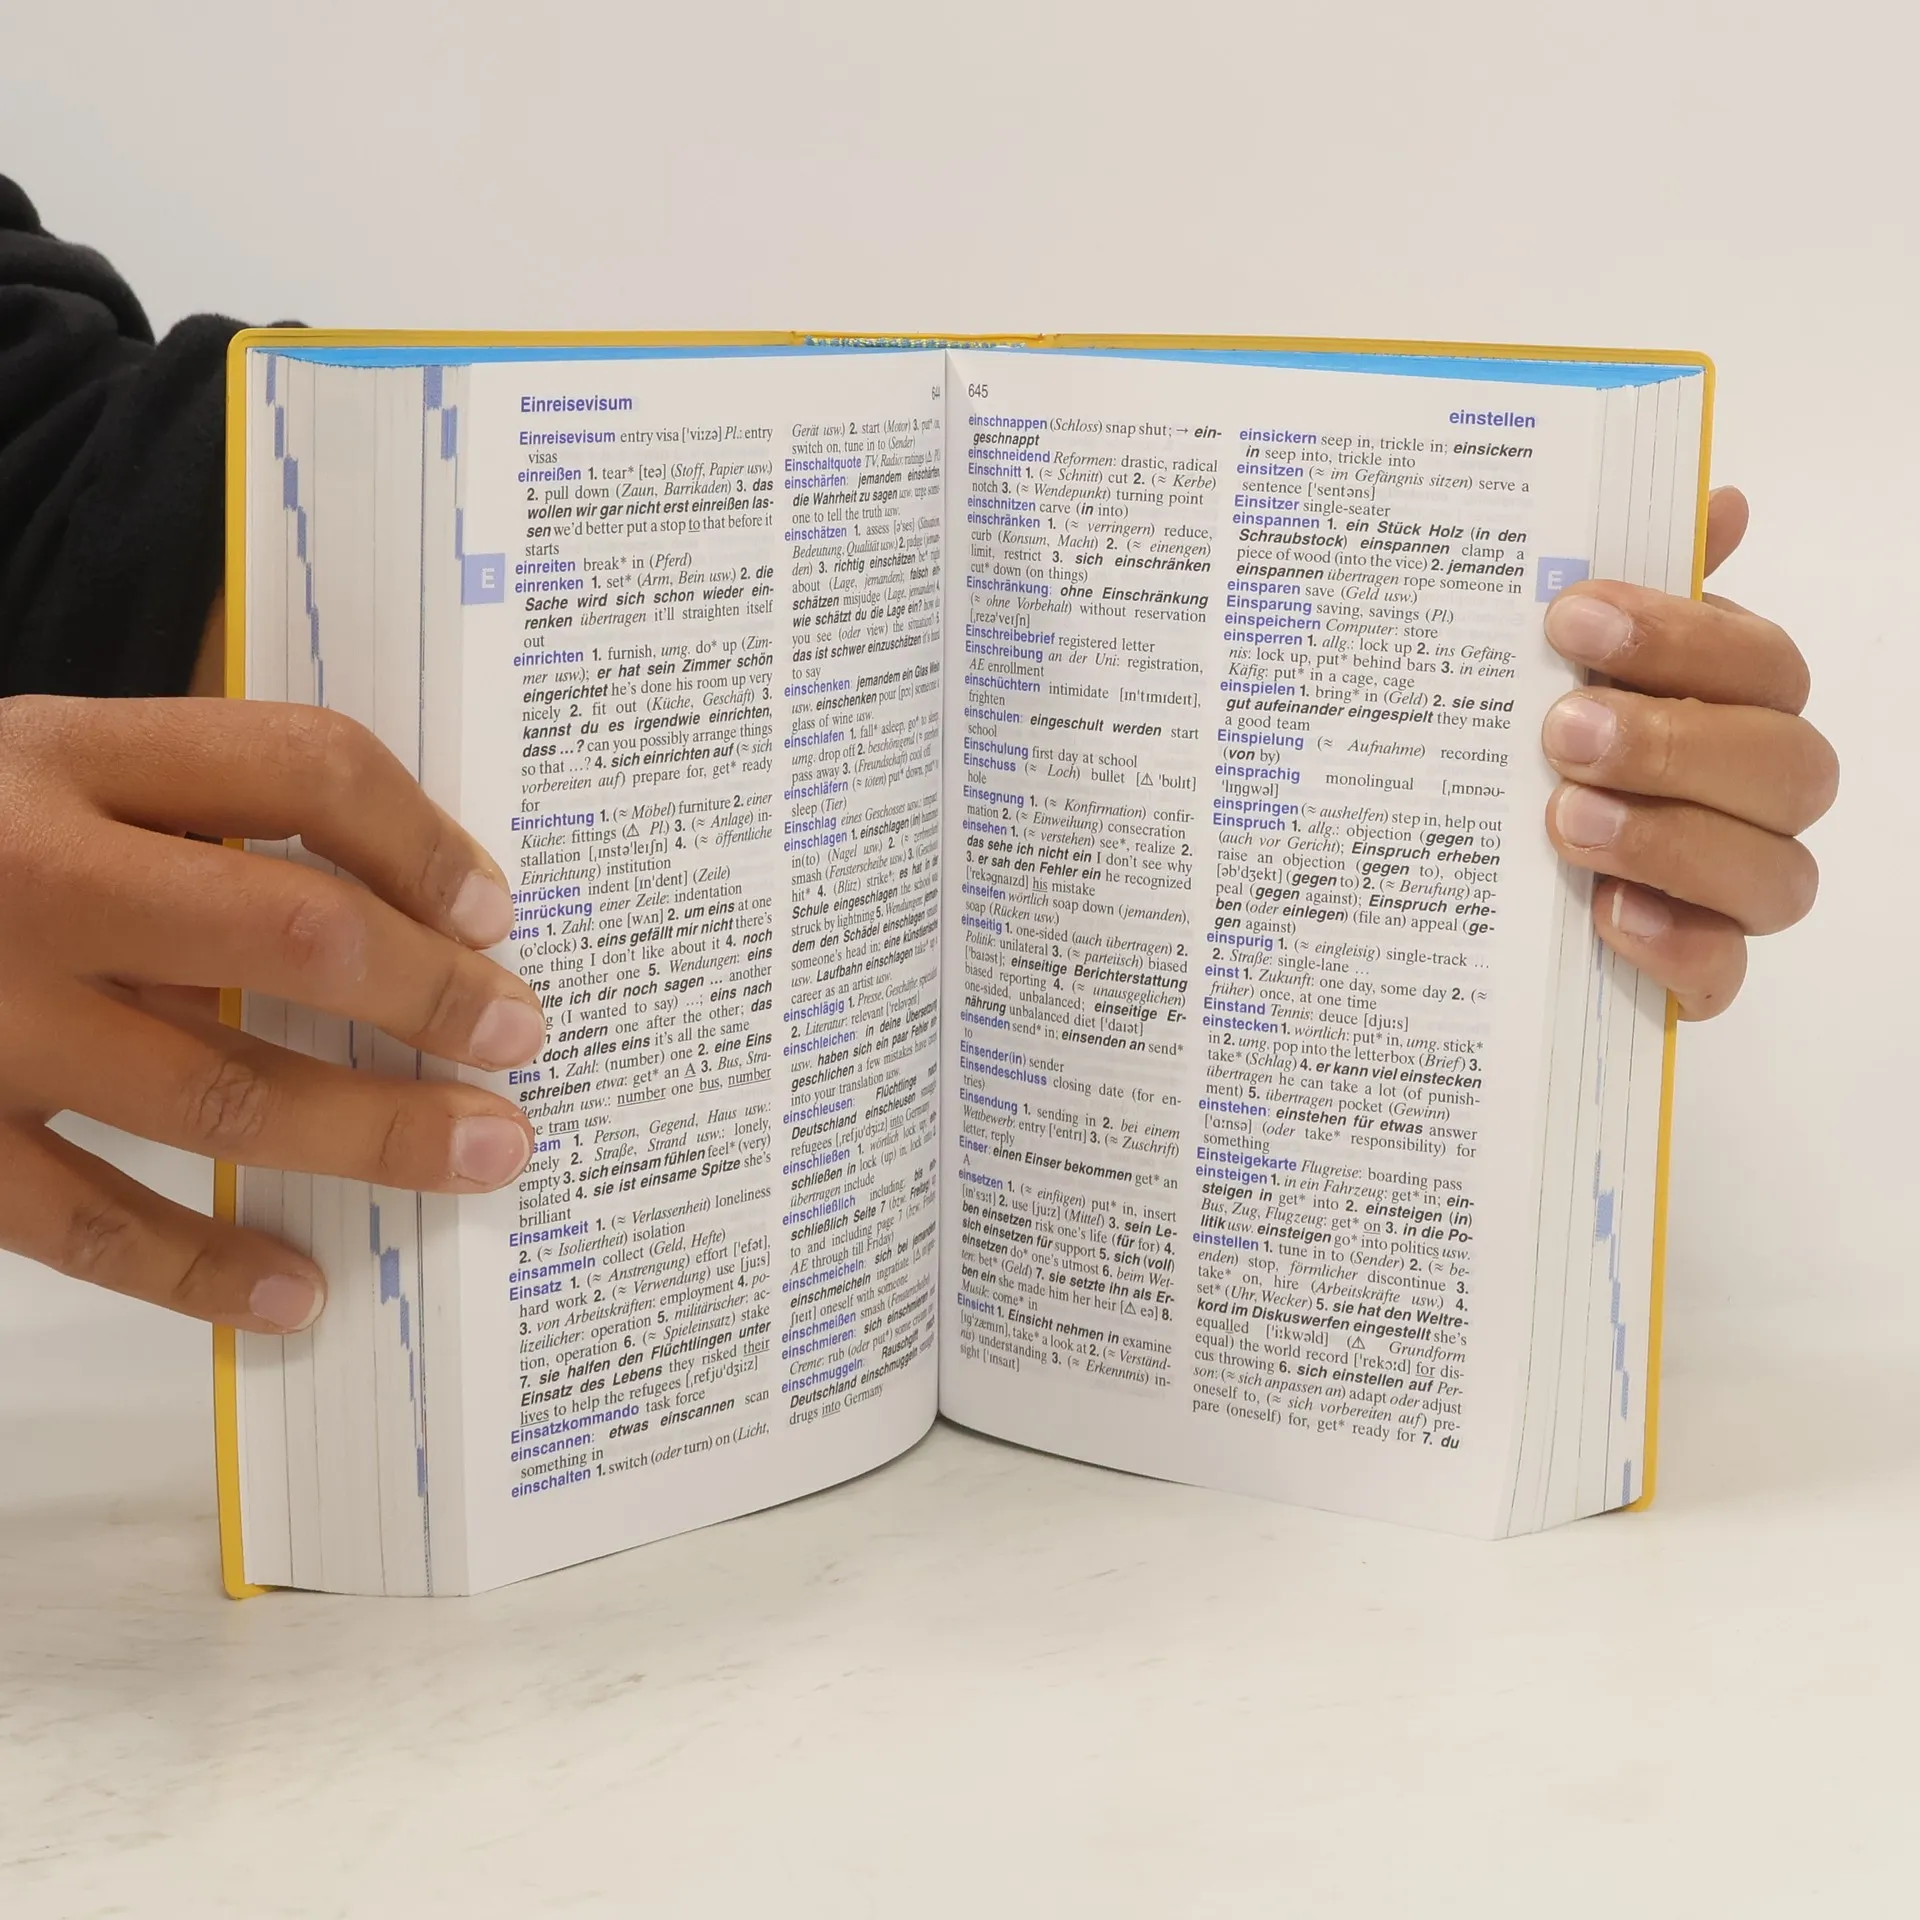 Einreisevisum
644
Einreisevisum entry visa ['viːzə] Pl.: entry
visas
einreißen 1. tear* [teə] (Stoff, Papier usw.)
2. pull down (Zaun, Barrikaden) 3. das
wollen wir gar nicht erst einreißen las-
sen we'd better put a stop to that before it
starts
einreiten break* in (Pferd)
einrenken 1. set* (Arm, Bein usw.) 2. die
Sache wird sich schon wieder ein-
renken übertragen it'll straighten itself
out
einrichten 1. furnish, umg. do* up (Zim-
mer usw.); er hat sein Zimmer schön
eingerichtet he's done his room up very
nicely 2. fit out (Küche, Geschäft) 3.
kannst du es irgendwie einrichten,
dass ...? can you possibly arrange things
so that ...? 4. sich einrichten auf (≈ sich
vorbereiten auf) prepare for, get* ready
for
Einrichtung 1. (≈ Möbel) furniture 2. einer
Küche: fittings (⚠ Pl.) 3. (≈ Anlage) in-
stallation [ˌɪnstə'leɪʃn] 4. (≈ öffentliche
Einrichtung) institution
einrücken indent [ɪn'dent] (Zeile)
Einrückung einer Zeile: indentation
eins 1. Zahl: one [wʌn] 2. um eins at one
(o'clock) 3. eins gefällt mir nicht there's
one thing I don't like about it 4. noch
ins another one 5. Wendungen: eins
llte ich dir noch sagen ... another
g (I wanted to say) ...; eins nach
n andern one after the other; das
doch alles eins it's all the same
Eins 1. Zahl: (number) one 2. eine Eins
schreiben etwa: get* an A 3. Bus, Stra-
ßenbahn usw.: number one bus, number
ne tram usw.
sam 1. Person, Gegend, Haus usw.:
onely 2. Straße, Strand usw.: lonely,
empty 3. sich einsam fühlen feel* (very)
isolated 4. sie ist einsame Spitze she's
brilliant
Einsamkeit 1. (≈ Verlassenheit) loneliness
2. (≈ Isoliertheit) isolation
einsammeln collect (Geld, Hefte)
Einsatz 1. (≈ Anstrengung) effort ['efət],
hard work 2. (≈ Verwendung) use [juːs]
3. von Arbeitskräften: employment 4. po-
lizeilicher: operation 5. militärischer: ac-
tion, operation 6. (≈ Spieleinsatz) stake
7. sie halfen den Flüchtlingen unter
Einsatz des Lebens they risked their
lives to help the refugees [ˌrefjʊ'dʒiːz]
Einsatzkommando task force
einscannen: etwas einscannen scan
something in
einschalten 1. switch (oder turn) on (Licht,
Gerät usw.) 2. start (Motor) 3. put* on,
switch on, tune in to (Sender)
Einschaltquote TV, Radio: ratings (⚠ Pl.)
einschärfen: jemandem einschärfen,
die Wahrheit zu sagen usw. urge some-
one to tell the truth usw.
einschätzen 1. assess [ə'ses] (Situation,
Bedeutung, Qualität usw.) 2. judge (jeman-
den) 3. richtig einschätzen be* right
about (Lage, jemanden); falsch ein-
schätzen misjudge (Lage, jemanden) 4.
wie schätzt du die Lage ein? how do
you see (oder view) the situation? 5.
das ist schwer einzuschätzen it's hard
to say
einschenken: jemandem ein Glas Wein
usw. einschenken pour [pɔː] someone a
glass of wine usw.
einschlafen 1. fall* asleep, go* to sleep,
umg. drop off 2. beschönigend (≈ sterben)
pass away 3. (Freundschaft) cool off
einschläfern (≈ töten) put* down, put* to
sleep (Tier)
Einschlag eines Geschosses usw.: impact
einschlagen 1. einschlagen (in) hammer
in(to) (Nagel usw.) 2. (≈ zertrümmern)
smash (Fensterscheibe usw.) 3. (Geschoss)
hit* 4. (Blitz) strike*; es hat in der
Schule eingeschlagen the school was
struck by lightning 5. Wendungen: jeman-
dem den Schädel einschlagen smash
someone's head in; eine künstlerische
usw. Laufbahn einschlagen take* up a
career as an artist usw.
einschlägig 1. Presse, Geschäfte: specialist
2. Literatur: relevant ['reləvənt]
einschleichen: in deine Übersetzung
usw. haben sich ein paar Fehler ein-
geschlichen a few mistakes have crept
into your translation usw.
einschleusen: Flüchtlinge nach
Deutschland einschleusen smuggle
refugees [ˌrefjʊ'dʒiːz] into Germany
einschließen 1. wörtlich lock up;
schließen in lock (up) in, lock into
übertragen include
einschließlich including; bis ein-
schließlich Seite 7 (bzw. Freitag) up
to and including page 7 (bzw. Friday,
AE through till Friday)
einschmeicheln: sich bei jemandem
einschmeicheln ingratiate
ʃieɪt] oneself with someone
einschmeißen smash (Fensterscheibe)
einschmieren: sich einschmieren mit
Creme: rub (oder put*) some cream on
einschmuggeln: Rauschgift nach
Deutschland einschmuggeln smuggle
drugs into Germany
645
einstellen
einschnappen (Schloss) snap shut; → ein-
geschnappt
einschneidend Reformen: drastic, radical
Einschnitt 1. (≈ Schnitt) cut 2. (≈ Kerbe)
notch 3. (≈ Wendepunkt) turning point
einschnitzen carve (in into)
einschränken 1. (≈ verringern) reduce,
curb (Konsum, Macht) 2. (≈ einengen)
limit, restrict 3. sich einschränken
cut* down (on things)
Einschränkung: ohne Einschränkung
(≈ ohne Vorbehalt) without reservation
[ˌrezə'veɪʃn]
Einschreibebrief registered letter
Einschreibung an der Uni: registration,
AE enrollment
einschüchtern intimidate [ɪn'tɪmɪdeɪt],
frighten
einschulen: eingeschult werden start
school
Einschulung first day at school
Einschuss (≈ Loch) bullet [⚠ 'bʊlɪt]
hole
Einsegnung 1. (≈ Konfirmation) confir-
mation 2. (≈ Einweihung) consecration
einsehen 1. (≈ verstehen) see*, realize 2.
das sehe ich nicht ein I don't see why
3. er sah den Fehler ein he recognized
['rekəgnaɪzd] his mistake
einseifen wörtlich soap down (jemanden),
soap (Rücken usw.)
einseitig 1. one-sided (auch übertragen) 2.
Politik: unilateral 3. (≈ parteiisch) biased
['baɪəst]; einseitige Berichterstattung
biased reporting 4. (≈ unausgeglichen)
one-sided, unbalanced; einseitige Er-
nährung unbalanced diet ['daɪət]
einsenden send* in; einsenden an send*
to
Einsender(in) sender
Einsendeschluss closing date (for en-
tries)
Einsendung 1. sending in 2. bei einem
Wettbewerb: entry ['entrɪ] 3. (≈ Zuschrift)
letter, reply
Einser: einen Einser bekommen get* an
A
einsetzen 1. (≈ einfügen) put* in, insert
[ɪn'sɜːt] 2. use [juːz] (Mittel) 3. sein Le-
ben einsetzen risk one's life (für for) 4.
sich einsetzen für support 5. sich (voll)
einsetzen do* one's utmost 6. beim Wet-
ten: bet* (Geld) 7. sie setzte ihn als Er-
ben ein she made him her heir [⚠ eə] 8.
Musik: come* in
Einsicht 1. Einsicht nehmen in examine
[ɪg'zæmɪn], take* a look at 2. (≈ Verständ-
nis) understanding 3. (≈ Erkenntnis) in-
sight ['ɪnsaɪt]
einsickern seep in, trickle in; einsickern
in seep into, trickle into
einsitzen (≈ im Gefängnis sitzen) serve a
sentence ['sentəns]
Einsitzer single-seater
einspannen 1. ein Stück Holz (in den
Schraubstock) einspannen clamp a
piece of wood (into the vice) 2. jemanden
einspannen übertragen rope someone in
einsparen save (Geld usw.)
Einsparung saving, savings (Pl.)
einspeichern Computer: store
einsperren 1. allg.: lock up 2. ins Gefäng-
nis: lock up, put* behind bars 3. in einen
Käfig: put* in a cage, cage
einspielen 1. bring* in (Geld) 2. sie sind
gut aufeinander eingespielt they make
a good team
Einspielung (≈ Aufnahme) recording
(von by)
einsprachig monolingual [ˌmɒnəʊ-
'lɪŋgwəl]
einspringen (≈ aushelfen) step in, help out
Einspruch 1. allg.: objection (gegen to)
(auch vor Gericht); Einspruch erheben
raise an objection (gegen to), object
[əb'dʒekt] (gegen to) 2. (≈ Berufung) ap-
peal (gegen against); Einspruch erhe-
ben (oder einlegen) (file an) appeal (ge-
gen against)
einspurig 1. (≈ eingleisig) single-track ...
2. Straße: single-lane ...
einst 1. Zukunft: one day, some day 2. (≈
früher) once, at one time
Einstand Tennis: deuce [djuːs]
einstecken 1. wörtlich: put* in, umg. stick*
in 2. umg. pop into the letterbox (Brief) 3.
take* (Schlag) 4. er kann viel einstecken
übertragen he can take a lot (of punish-
ment) 5. übertragen pocket (Gewinn)
einstehen: einstehen für etwas answer
['ɑːnsə] (oder take* responsibility) for
something
Einsteigekarte Flugreise: boarding pass
einsteigen 1. in ein Fahrzeug: get* in; ein-
steigen in get* into 2. einsteigen (in)
Bus, Zug, Flugzeug: get* on 3. in die Po-
litik usw. einsteigen go* into politics usw.
einstellen 1. tune in to (Sender) 2. (≈ be-
enden) stop, förmlicher discontinue 3.
take* on, hire (Arbeitskräfte usw.) 4.
set* (Uhr, Wecker) 5. sie hat den Weltre-
kord im Diskuswerfen eingestellt she's
equalled ['iːkwəld] (⚠ Grundform
equal) the world record ['rekɔːd] for dis-
cus throwing 6. sich einstellen auf Per-
son: (≈ sich anpassen an) adapt oder adjust
oneself to, (≈ sich vorbereiten auf) pre-
pare (oneself) for, get* ready for 7. du
E
E